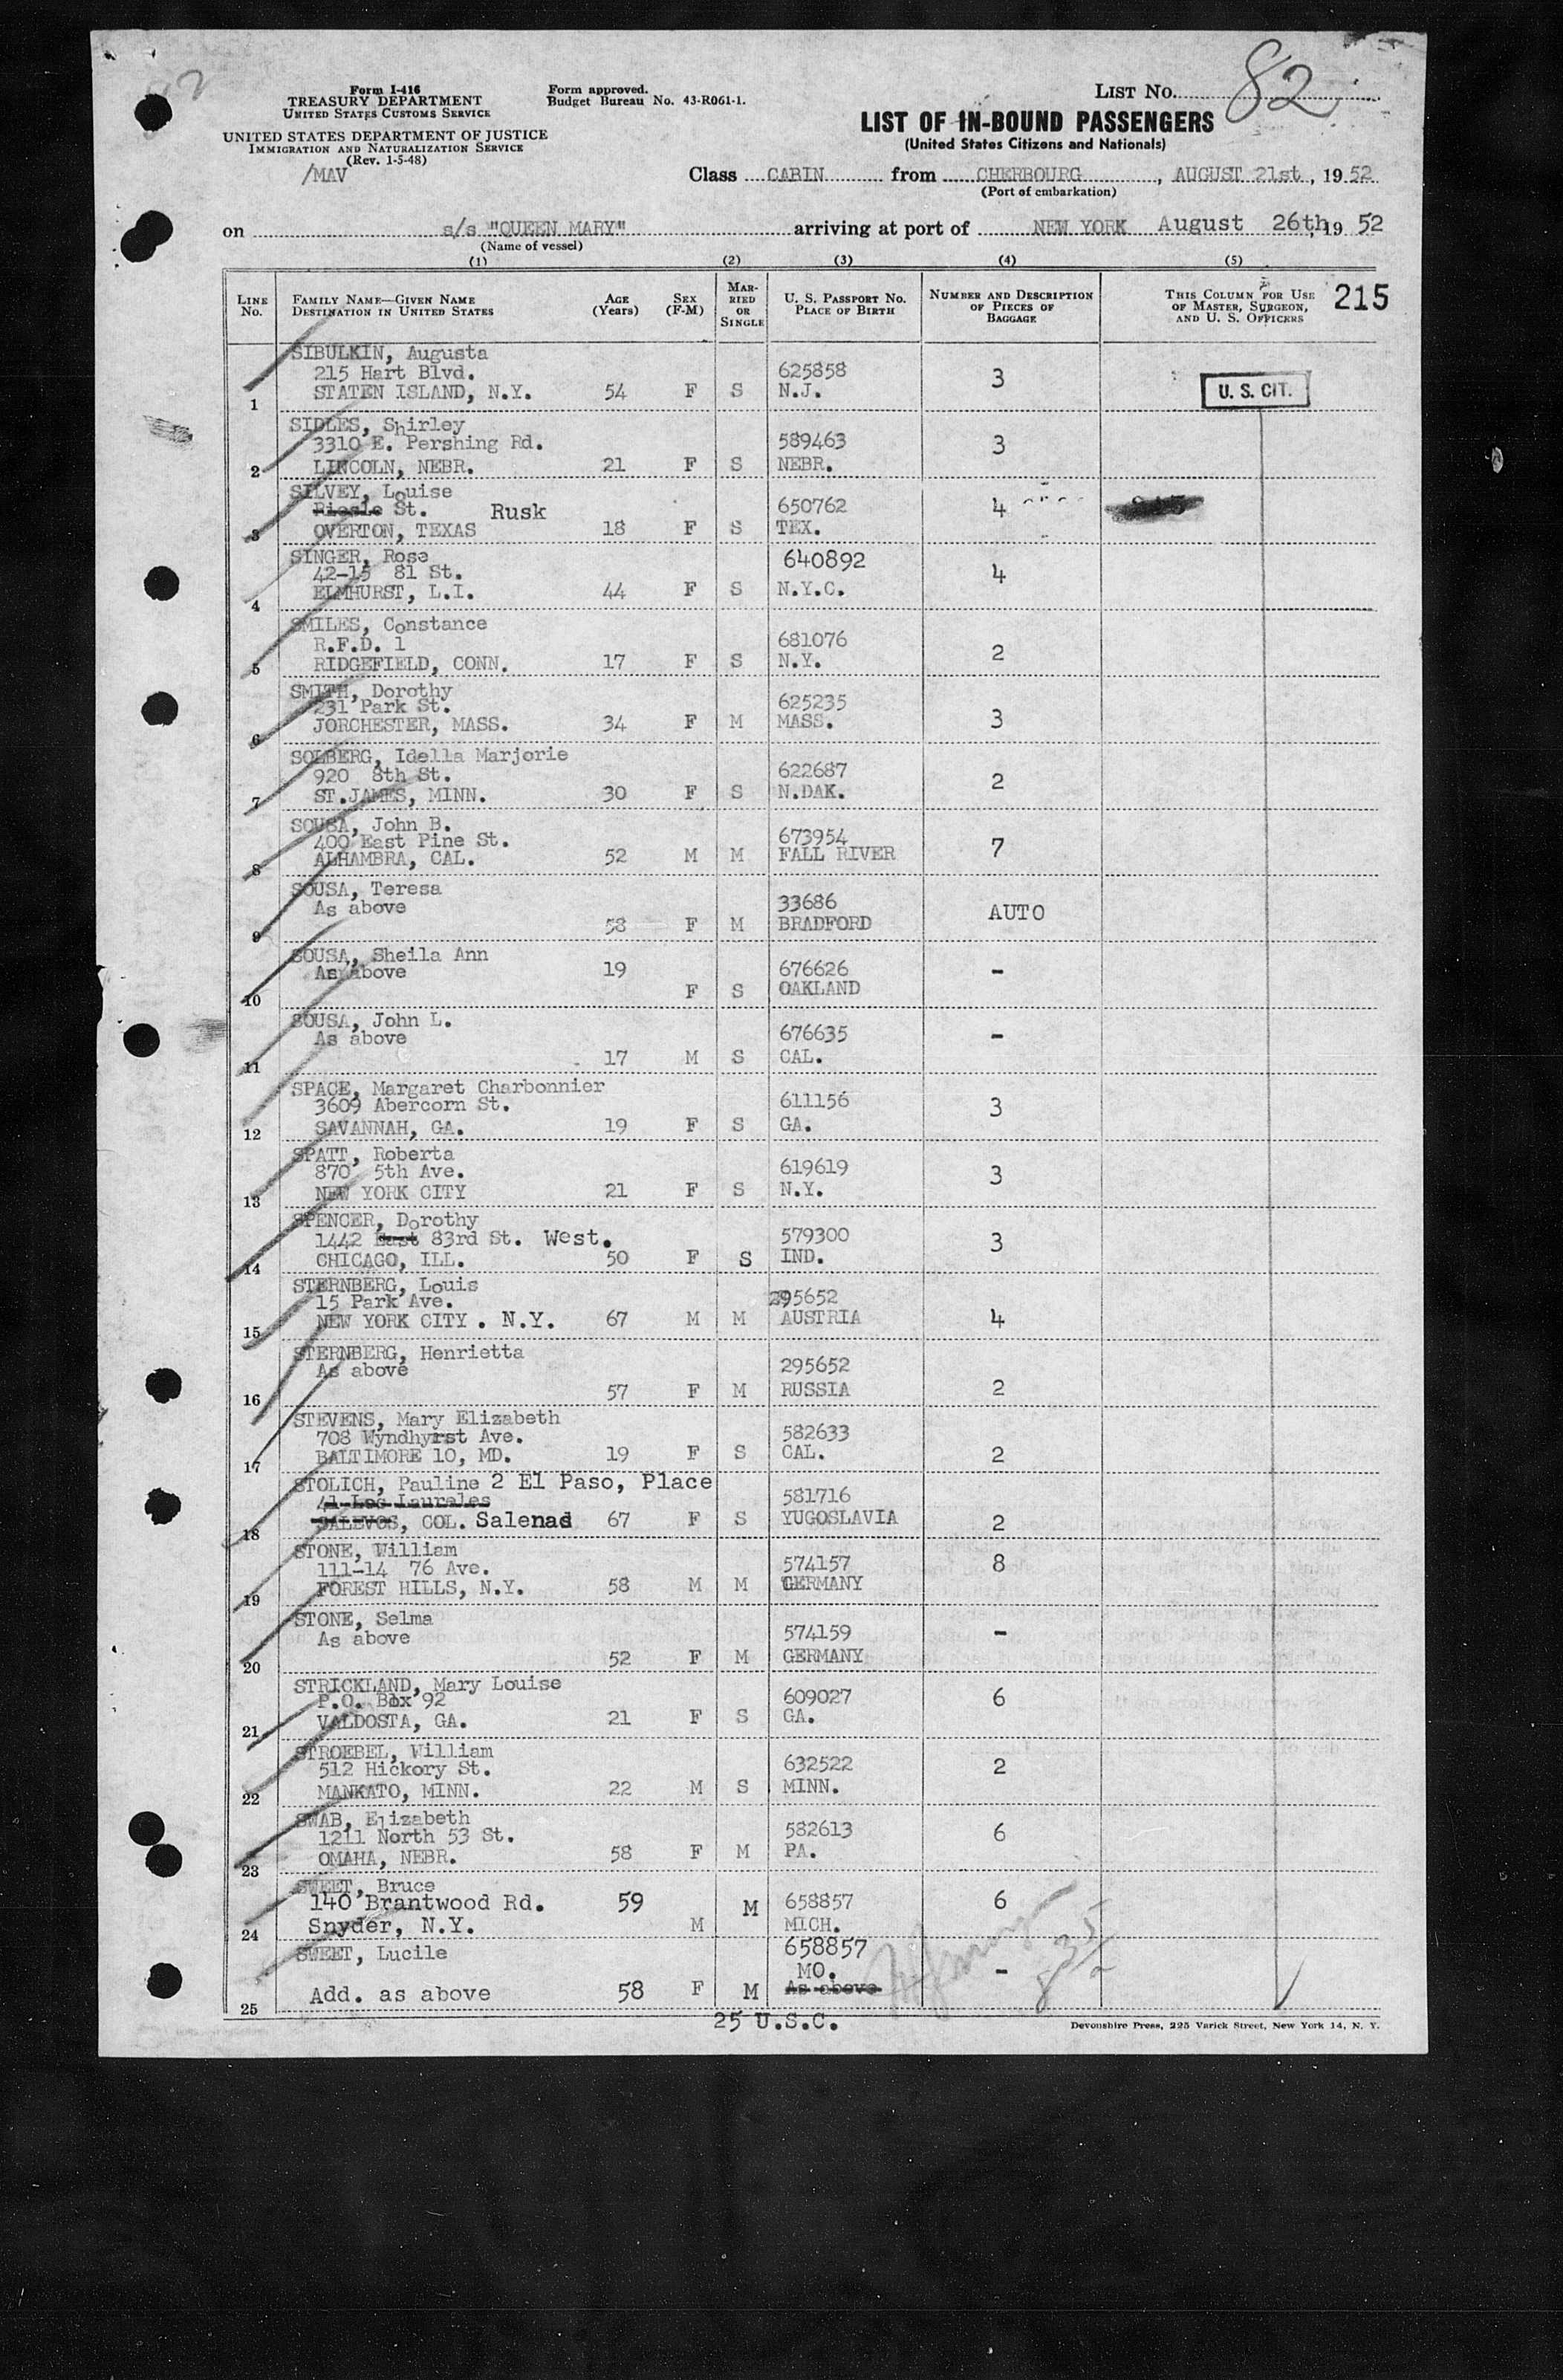 Form I-416
TREASURY DEPARTMENT
UNITED STATES CUSTOMS SERVICE
UNITED STATES DEPARTMENT OF JUSTICE
IMMIGRATION AND NATURALIZATION SERVICE
(Rev. 1-5-48)
/MAV
Form approved.
Budget Bureau No. 43-R061-1.
LIST NO. 82
LIST OF IN-BOUND PASSENGERS
(United States Citizens and Nationals)
Class CABIN from CHERBOURG, AUGUST 21st, 19 52
(Port of embarkation)
on s/s "QUEEN MARY" arriving at port of NEW YORK August 26th, 19 52
(Name of vessel)
(1) (2) (3) (4) (5)
LINE No. FAMILY NAME—GIVEN NAME DESTINATION IN UNITED STATES AGE (Years) SEX (F-M) MARRIED OR SINGLE U. S. PASSPORT NO. PLACE OF BIRTH NUMBER AND DESCRIPTION OF PIECES OF BAGGAGE THIS COLUMN FOR USE OF MASTER, SURGEON, AND U. S. OFFICERS 215
SIBULKIN, Augusta
215 Hart Blvd. 625858 3
1 STATEN ISLAND, N.Y. 54 F S N.J. U. S. CIT.
SIDLES, Shirley
3310 E. Pershing Rd. 589463 3
2 LINCOLN, NEBR. 21 F S NEBR.
SILVEY, Louise
St. Rusk 650762 4
3 OVERTON, TEXAS 18 F S TEX.
SINGER, Rose 640892
42-15 81 St. 4
4 ELMHURST, L.I. 44 F S N.Y.C.
SMILES, Constance
R.F.D. 1 681076 2
5 RIDGEFIELD, CONN. 17 F S N.Y.
SMITH, Dorothy
231 Park St. 625235
6 JORCHESTER, MASS. 34 F M MASS. 3
SOLBERG, Idella Marjorie
920 8th St. 622687 2
7 ST.JAMES, MINN. 30 F S N.DAK.
SOUSA, John B.
400 East Pine St. 673954 7
8 ALHAMBRA, CAL. 52 M M FALL RIVER
SOUSA, Teresa
As above 33686 AUTO
9 58 F M BRADFORD
SOUSA, Sheila Ann
As above 19 676626 -
10 F S OAKLAND
SOUSA, John L.
As above 676635 -
11 17 M S CAL.
SPACE, Margaret Charbonnier
3609 Abercorn St. 611156 3
12 SAVANNAH, GA. 19 F S GA.
SPATT, Roberta
870 5th Ave. 619619 3
13 NEW YORK CITY 21 F S N.Y.
SPENCER, Dorothy
1442 East 83rd St. West. 579300 3
14 CHICAGO, ILL. 50 F S IND.
STERNBERG, Louis
15 Park Ave. 295652
15 NEW YORK CITY . N.Y. 67 M M AUSTRIA 4
STERNBERG, Henrietta
As above 295652
16 57 F M RUSSIA 2
STEVENS, Mary Elizabeth
708 Wyndhyrst Ave. 582633
17 BALTIMORE 10, MD. 19 F S CAL. 2
STOLICH, Pauline 2 El Paso, Place
41 Los Laureles 581716
18 SALEVOS, COL. Salenas 67 F S YUGOSLAVIA 2
STONE, William
111-14 76 Ave. 574157 8
19 FOREST HILLS, N.Y. 58 M M GERMANY
STONE, Selma
As above 574159 -
20 52 F M GERMANY
STRICKLAND, Mary Louise
P.O. Box 92 609027 6
21 VALDOSTA, GA. 21 F S GA.
STROEBEL, William
512 Hickory St. 632522 2
22 MANKATO, MINN. 22 M S MINN.
SWAB, Elizabeth
1211 North 53 St. 582613 6
23 OMAHA, NEBR. 58 F M PA.
SWEET, Bruce
140 Brantwood Rd. 59 M 658857 6
24 Snyder, N.Y. M MICH.
SWEET, Lucile 658857
MO. -
25 Add. as above 58 F M As above
25 U.S.C.
Devonshire Press, 225 Varick Street, New York 14, N. Y.